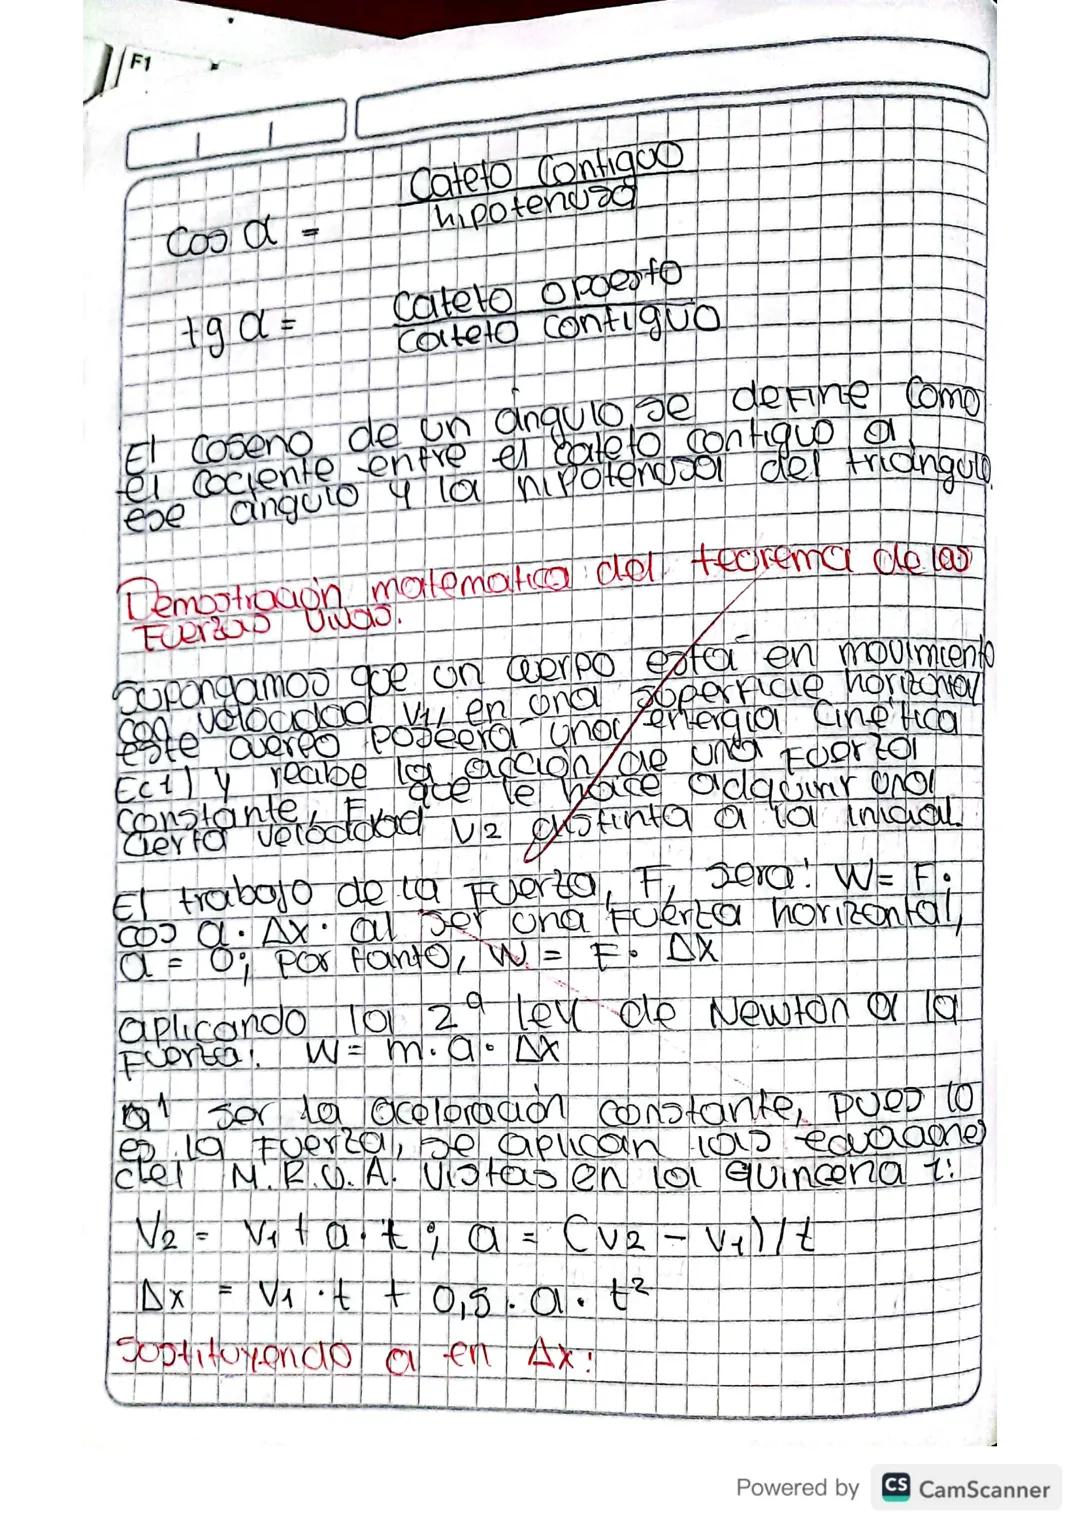 F1
Cos α = Cateto Contiguo
hipotenusa
tg α = Cateto opuesto
Cateto contiguo
El coseno de un ángulo se define como
el cociente entre el cateto contiguo a
ese ángulo y la hipotenusa del triángulo
Demostración matematica del teorema de las
Fuerzas vivas.
Supongamos que un cuerpo está en movimiento
con velocidad v1, en una superficie horizontal
este cuerpo poseerá una energia Cinética
Ec1) y recibe la acción de una Fuerza
constante, F, que le hace adquirir una
cierta velocidad v2 distinta a la inicial.
El trabajo de la Fuerza, F, sera: W= F.
cos α. Δx. al ser una Fuerza horizontal,
α = 0; por tanto, W = F. Δx
aplicando la 2ª ley de Newton a la
Fuerza: W= m.a. Δx
al ser la aceleración constante, pues lo
es la Fuerza, se aplican las ecuaciones
del M.R.U.A. vistas en la quincena 1:
V2 = V1 + a.t; a = (v2 - v1)/t
Δx = V1 .t + 0,5. a. t²
Sustituyendo a en Δx:
Powered by CS CamScanner